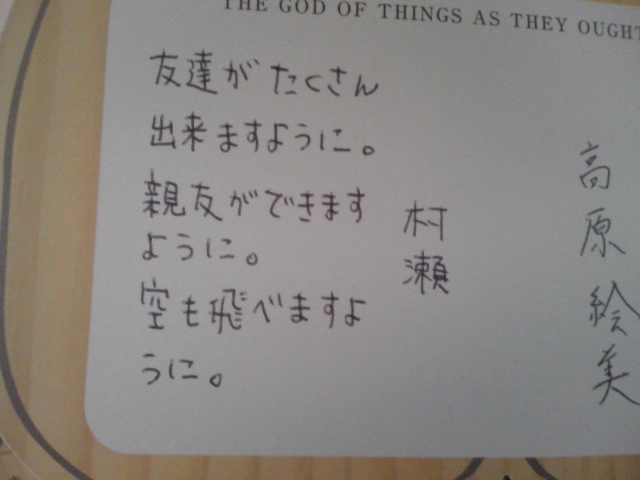 THE GOD OF THINGS AS THEY OUGHT
友達がたくさん
出来ますように。
親友ができます
ように。
空も飛べますよ
うに。
村瀬
高原絵美